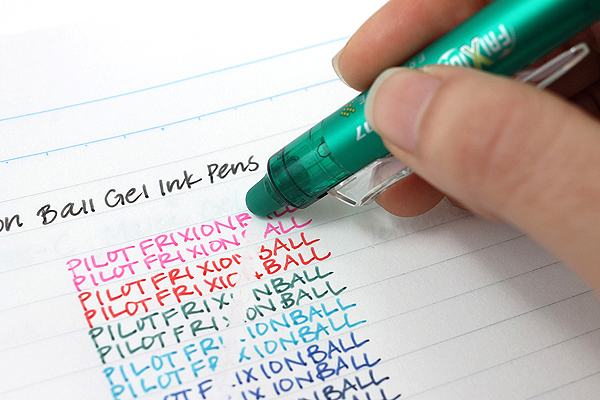 FRIXION
on Ball Gel Ink Pens
PILOT FRIXION B ALL
PILOT FRIXION ALL
PILOT FRIXION BALL
PILOT FRIXIO BALL
PILOT FRIX NBALL
PILOT FRI ON BALL
PILOT FRI IONBALL
PILOT FR XIONBALL
IXIONBALL
IX IONBALL